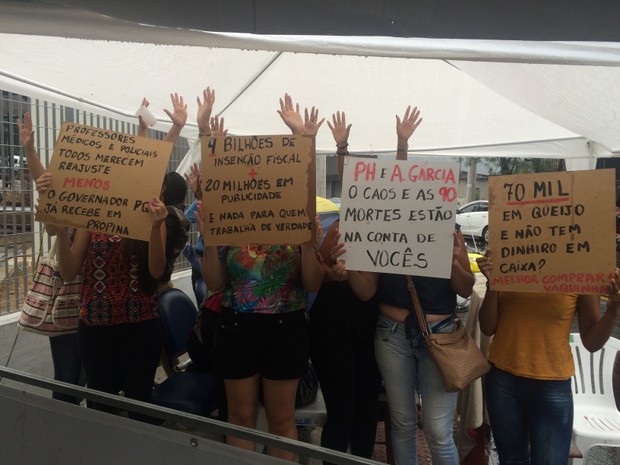 PROFESSORES
MÉDICOS E POLICIAIS
TODOS MERECEM
REAJUSTE
MENOS
O GOVERNADOR PQ
JA RECEBE EM
PROPINA
4 BILHÕES DE
INSENÇÃO FISCAL
+
20 MILHÕES EM
PUBLICIDADE
E NADA PARA QUEM
TRABALHA DE VERDADE
PH E A. GARCIA
O CAOS E AS 90
MORTES ESTÃO
NA CONTA DE
VOCÊS
70 MIL
EM QUEIJO
E NÃO TEM
DINHEIRO EM
CAIXA?
MELHOR COMPRAR 1
VAQUINHA